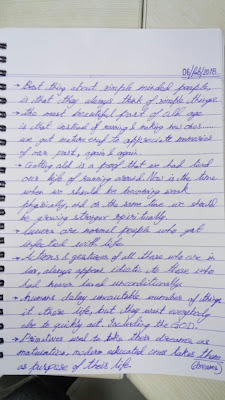 06/Feb/2018
→ Best thing about simple minded people,
is that they always think of simple things.
→ The most beautiful part of old age
is that instead of running & making new ones.....
we get mature enuf to appreciate memories
of our past, again & again.
→ Getting old is a proof that we had lived
our life of running around. Now is the time
when we should be becoming weak
physically, and at the same time we should
be growing stronger spiritually.
→ Lovers are normal people who get
infected with life.
→ Actions & gestures of all those who are in
love, always appear idiotic to those who
had never loved unconditionally.
→ Humans delay uncountable number of things
in their life, but they want everybody
else to quickly act including the GOD.
→ Primitives used to take their dreams as
motivation, modern educated ones takes them
as purpose of their life.
(dreams)